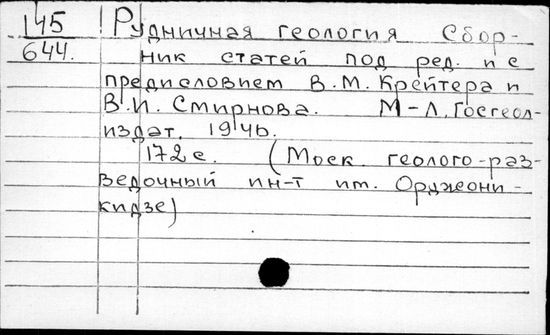 145
644.
Рудничная геология Сбор-
ник статей под ред. и с
предисловием В.М. Крейтера и
В.И. Смирнова. М-Л. Госгеол-
издат. 1946.
172 с. (Моск. геолого-раз-
ведочный ин-т им. Орджони-
кидзе)